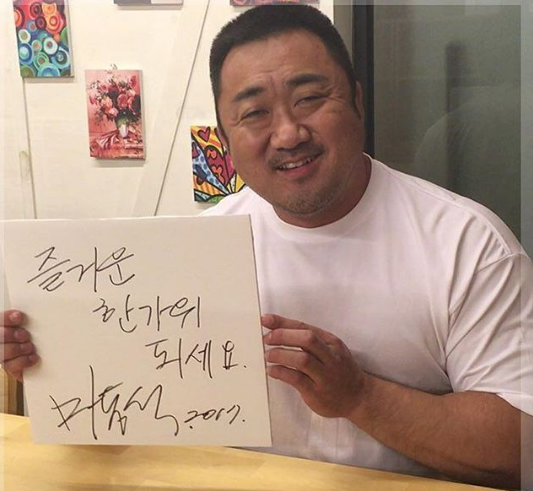 즐거운
한가위
되세요.
마동석. 2017.